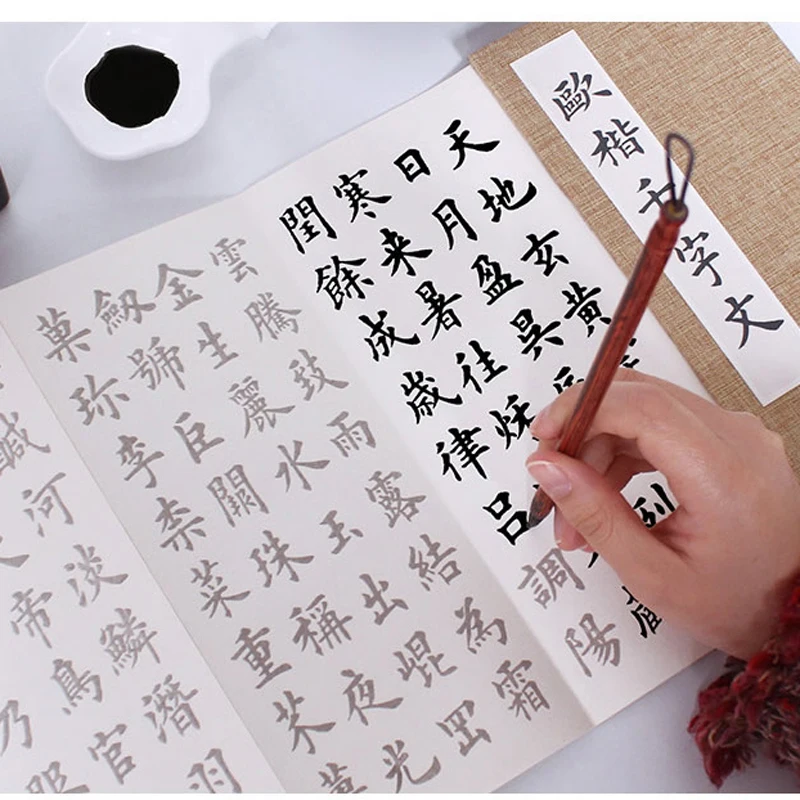 歐楷千字文
天地玄黄
日月盈昃列
寒来暑往秋
閏餘成歲律吕調陽
雲騰致雨露結為霜
金生麗水玉出崐岡
劔號巨闕珠稱夜光
菓珍李柰菜重芥薑
鹹河淡鱗潛羽
帝鳥官
乃服